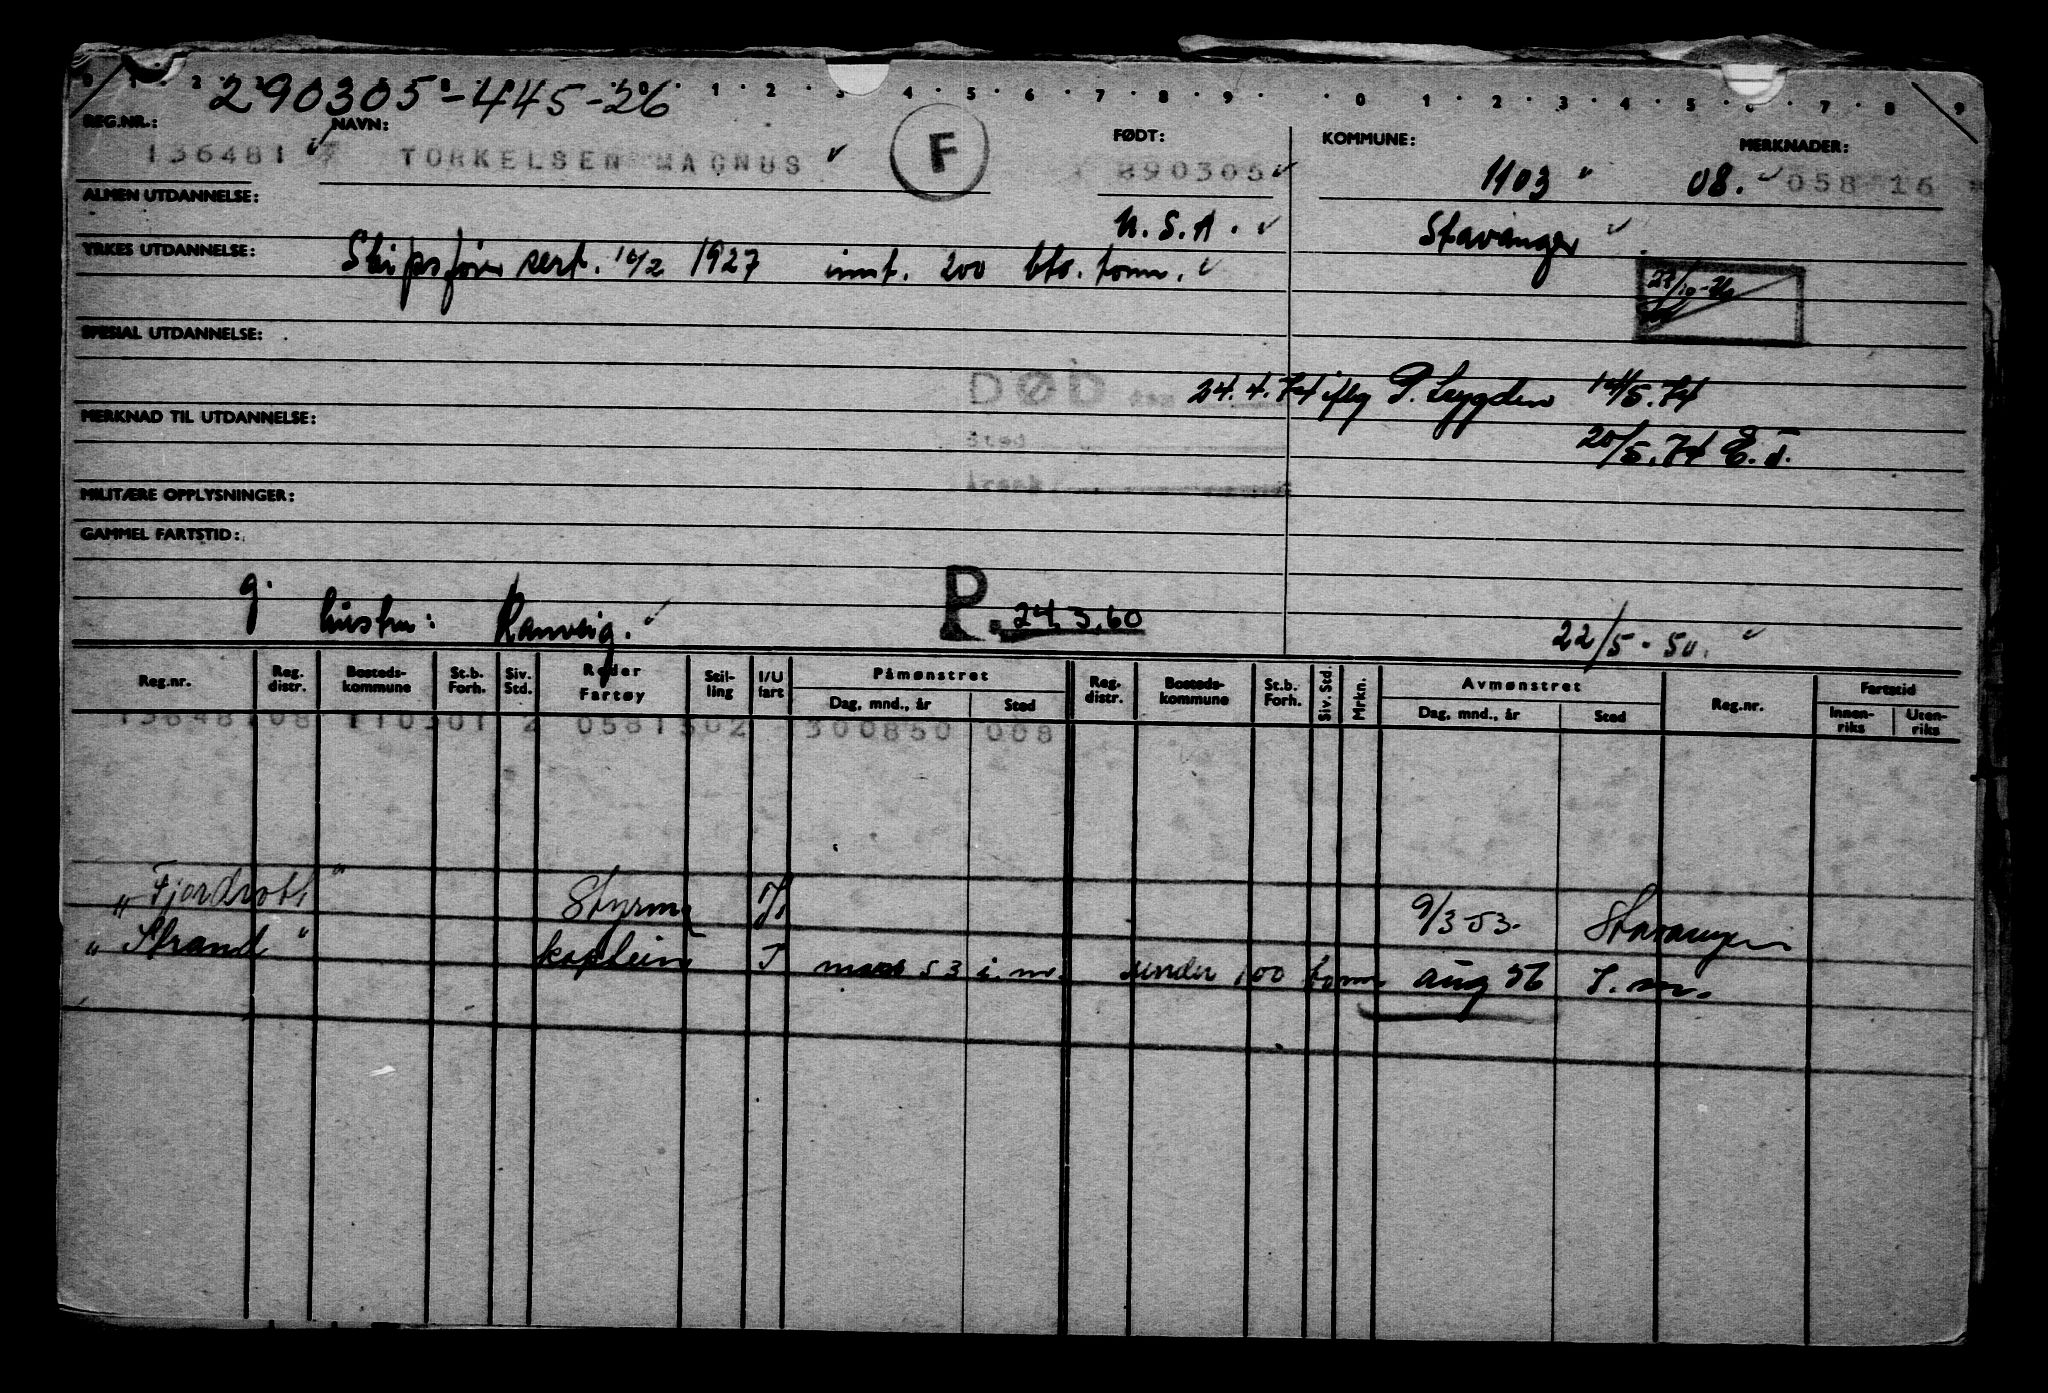 0 1 2 1 2 3 4 5 6 7 8 9 0 1 2 3 4 5 6 7 8 9
290305-445-26
REG.NR.: NAVN: FØDT: KOMMUNE: MERKNADER:
136481 7 TORKELSEN MAGNUS F 290305 1103 08. 058 16
ALMEN UTDANNELSE: U.S.A. Stavanger
YRKES UTDANNELSE: Skipsfører sert. 10/2 1927 innt. 200 bto. tonn.
SPESIAL UTDANNELSE:
DØD den 24.4.74 iflg P. Lygden 14/5.74
MERKNAD TIL UTDANNELSE:
Sted 20/5.74 E.T.
MILITÆRE OPPLYSNINGER: Årsak
GAMMEL FARTSTID:
g. hustru: Ranveig. P. 24.3.60 22/5-50.
Reg.nr. Reg. distr. Bosteds-kommune St.b. Forh. Siv. Std. Reder Fartøy Stil-ling I/U fart Påmønstret Dag, mnd., år Sted Reg. distr. Bosteds-kommune St.b. Forh. Siv. Std. Mrkn. Avmønstret Dag, mnd., år Sted Reg.nr. Fartstid Innen-riks Uten-riks
136481 08 110301 2 0581502 300850 008
"Fjordrott" Styrm 9/3 53. Stavanger
"Strand" kaptein I mars 53 i.m. under 100 tonn aug 56 I.m.